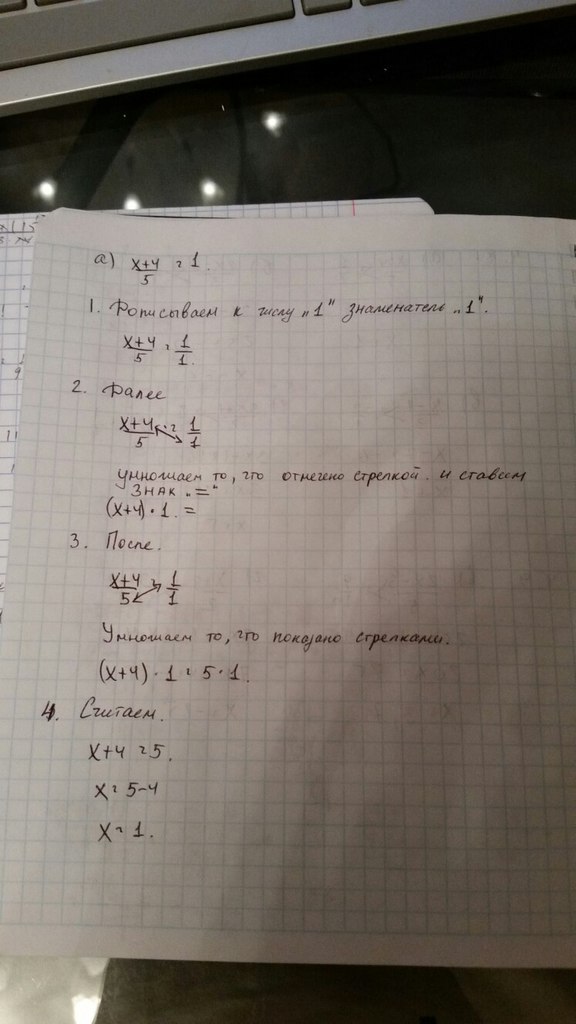 а) x+4/5 = 1.
1. Дописываем к числу „1" знаменатель „1".
x+4/5 = 1/1.
2. Далее
x+4/5 = 1/1
умножаем то, что отмечено стрелкой. и ставим
знак „="
(x+4) · 1. =
3. После.
x+4/5 = 1/1
Умножаем то, что показано стрелками.
(x+4) · 1 = 5 · 1.
4. Считаем.
x+4 = 5.
x = 5-4
x = 1.